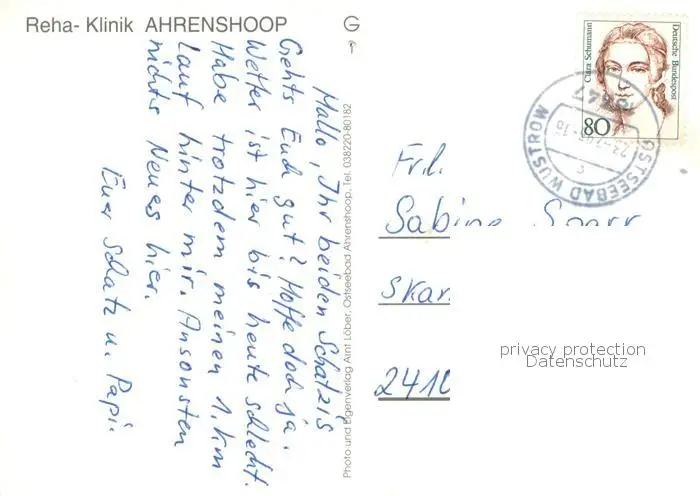 Reha- Klinik AHRENSHOOP
G
Hallo, Ihr beiden Schatzis
Gehts Euch gut? Hoffe doch ja.
Wetter ist hier bis heute schlecht.
Habe trotzdem meinen 1. km
Lauf hinter mir. Ansonsten
nichts Neues hier.
Euer Schatz u. Papi.
Photo und Eigenverlag Arnt Löber, Ostseebad Ahrenshoop, Tel. 038220-80182
Clara Schumann
Deutsche Bundespost
80
OSTSEEBAD WUSTROW
Frl.
Sabine
Skar
privacy protection
Datenschutz